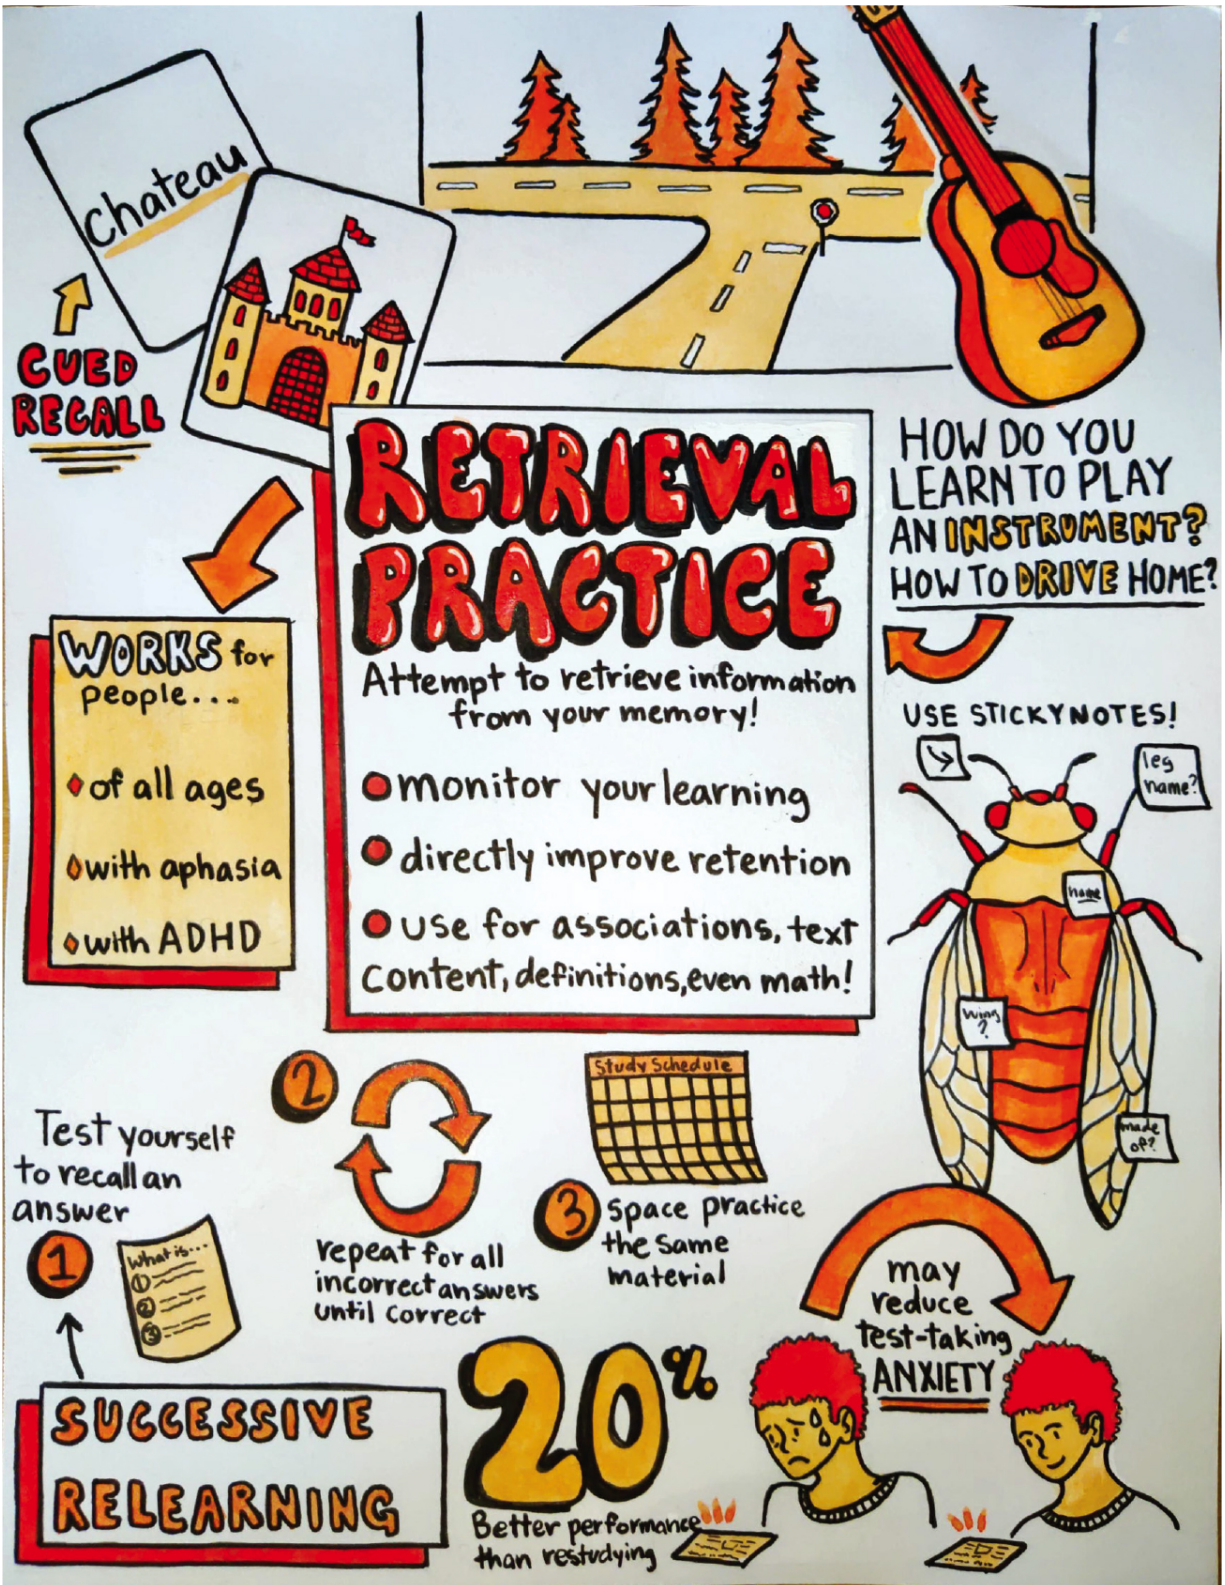 Chateau
CUED
RECALL
RETRIEVAL
PRACTICE
Attempt to retrieve information
from your memory!
monitor your learning
directly improve retention
use for associations, text
content, definitions, even math!
HOW DO YOU
LEARN TO PLAY
AN INSTRUMENT?
HOW TO DRIVE HOME?
WORKS for
people...
of all ages
with aphasia
with ADHD
USE STICKY NOTES!
leg
name?
name
wing
?
made
of?
Test yourself
to recall an
answer
1
What is...
1
2
3
2
repeat for all
incorrect answers
until correct
Study Schedule
3
space practice
the same
material
may
reduce
test-taking
ANXIETY
SUCCESSIVE
RELEARNING
20%
Better performance
than restudying